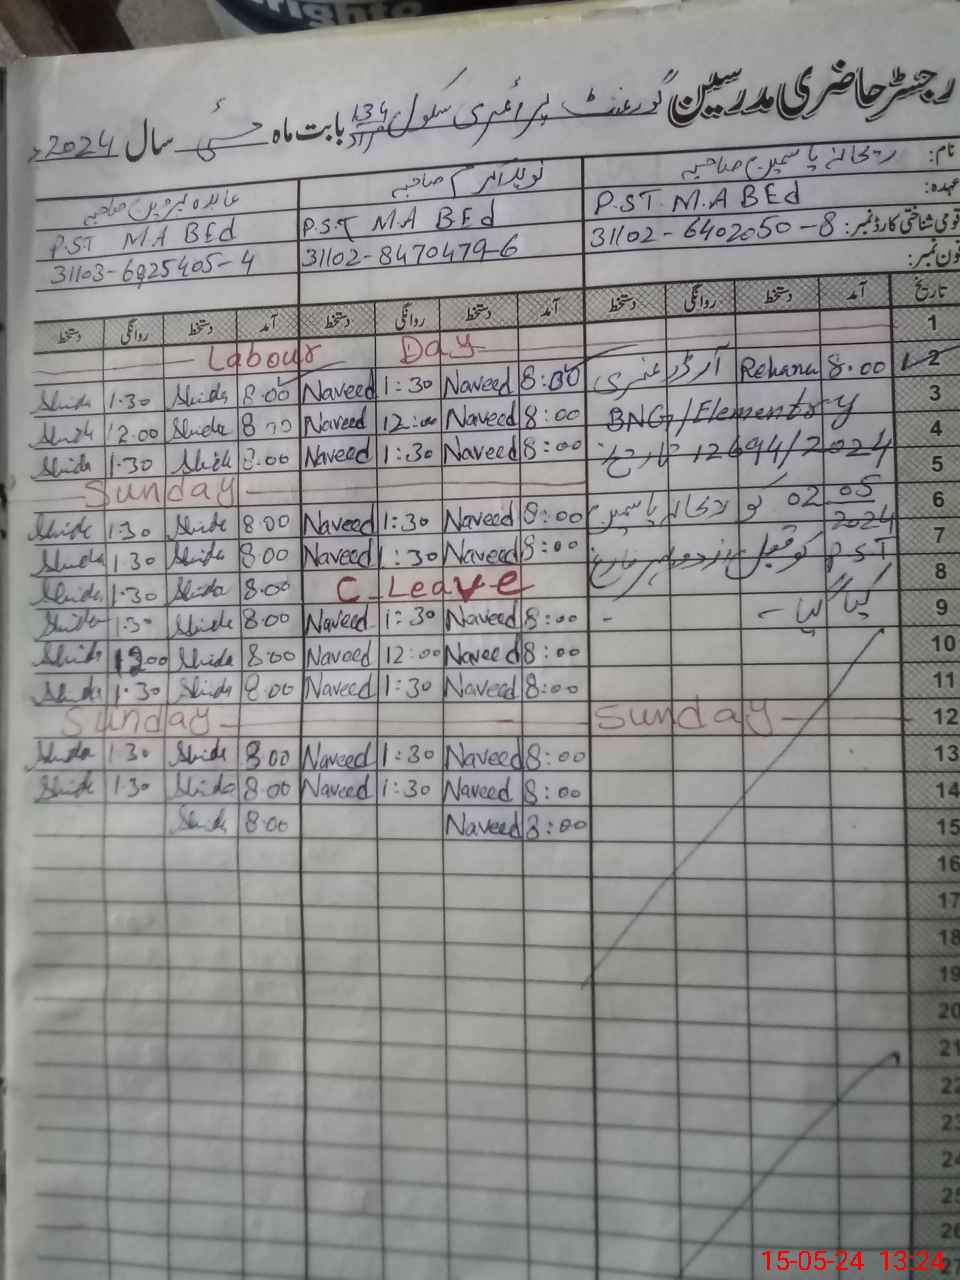 righto
رجسٹر حاضری مدرسین گورنمنٹ پرائمری سکول 134 بابت ماہ مئی سال 2024ء
نام: ریحانہ یاسمین صاحبہ نوید اکرم صاحبہ عابدہ پروین صاحبہ
عہدہ: P.ST. M.A BEd P.S.T M.A BEd P.ST M.A BEd
قومی شناختی کارڈ نمبر: 31102-6402050-8 31102-8470479-6 31103-6925405-4
فون نمبر:
تاریخ آمد دستخط روانگی دستخط آمد دستخط روانگی دستخط آمد دستخط روانگی دستخط
1 Labour Day
2 8.00 Rehana آرڈر 8:00 Naveed 1:30 Naveed 8.00 Shida 1.30 Shida
3 BNG/Elementry 8:00 Naveed 12:00 Naveed 8.00 Shida 12.00 Shida
4 12694/2024 تاریخ 8:00 Naveed 1:30 Naveed 8.00 Shida 1.30 Shida
5 Sunday
6 02 05 2024 کو ریحانہ یاسمین 8:00 Naveed 1:30 Naveed 8.00 Shida 1.30 Shida
7 PST کو 8:00 Naveed 1:30 Naveed 8.00 Shida 1.30 Shida
8 کیا گیا - C-Leave 8.00 Shida 1.30 Shida
9 8:00 Naveed 1:30 Naveed 8.00 Shida 1.30 Shida
10 8:00 Naveed 12:00 Naveed 8.00 Shida 12.00 Shida
11 8:00 Naveed 1:30 Naveed 8.00 Shida 1.30 Shida
12 Sunday Sunday
13 8:00 Naveed 1:30 Naveed 8.00 Shida 1.30 Shida
14 8:00 Naveed 1:30 Naveed 8.00 Shida 1.30 Shida
15 8:00 Naveed 8.00 Shida
16
17
18
19
20
21
22
23
24
25
26
27
15-05-24 13:24